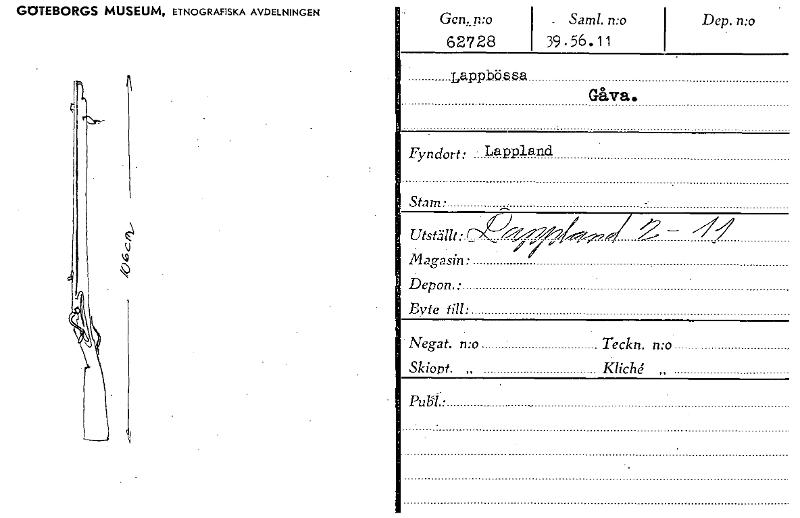 GÖTEBORGS MUSEUM, ETNOGRAFISKA AVDELNINGEN
106cm
Gen. n:o Saml. n:o Dep. n:o
62728 39.56.11
Lappbössa
Gåva.
Fyndort: Lappland
Stam:
Utställt: Lappland 2-11
Magasin:
Depon.:
Byte till:
Negat. n:o Teckn. n:o
Skiopt. „ Kliché „
Publ.: